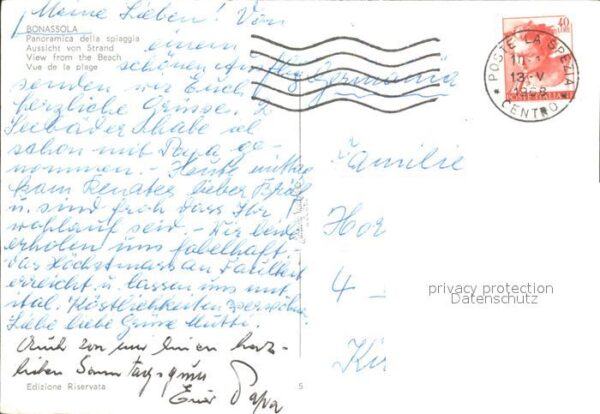 ¡Meine Lieben! Von
BONASSOLA
Panoramica della spiaggia
Aussicht von Strand
View from the Beach
Vue de la plage
einem
schönen Ausflug
senden wir Euch
herzliche Grüsse. 2
Seebäder habe
schon mit Papa ge-
nommen. – Heute mittag
kam Renates lieber Brief
u. sind froh dass Ihr
wohlauf seid. – Wir beide
erholen uns fabelhaft
das Höchstmass an Faulheit
erreicht u. lassen uns mit
ital. Köstlichkeiten verwöhnen
Liebe liebe Grüsse Mutti.
Auch von mir einen herz-
lichen Sonntagsgruss
Euer Papa
Edizione Riservata
5
Germania
40
LIRE
POSTE ITALIANE
POSTE LA SPEZIA
13-V
CENTRO
Familie
Hor
4 –
privacy protection
Datenschutz